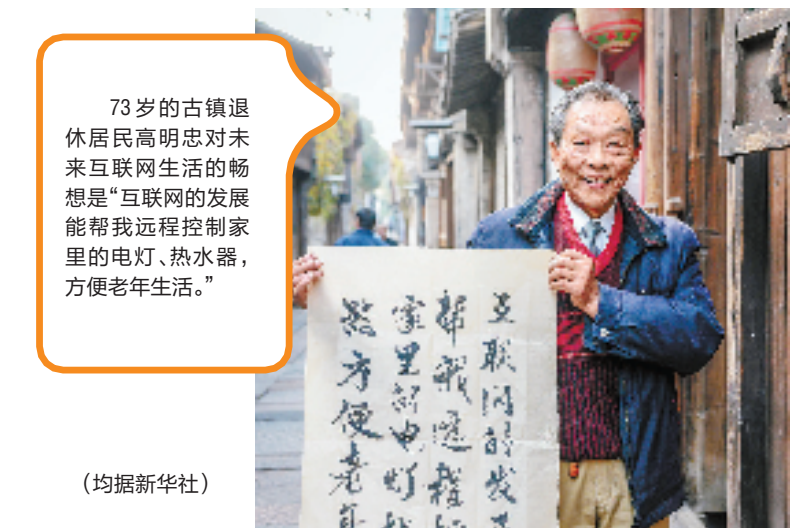 73岁的古镇退
休居民高明忠对未
来互联网生活的畅
想是“互联网的发展
能帮我远程控制家
里的电灯、热水器，
方便老年生活。”
互联网的发
帮我远程
家里的电灯
方便老年
（均据新华社）